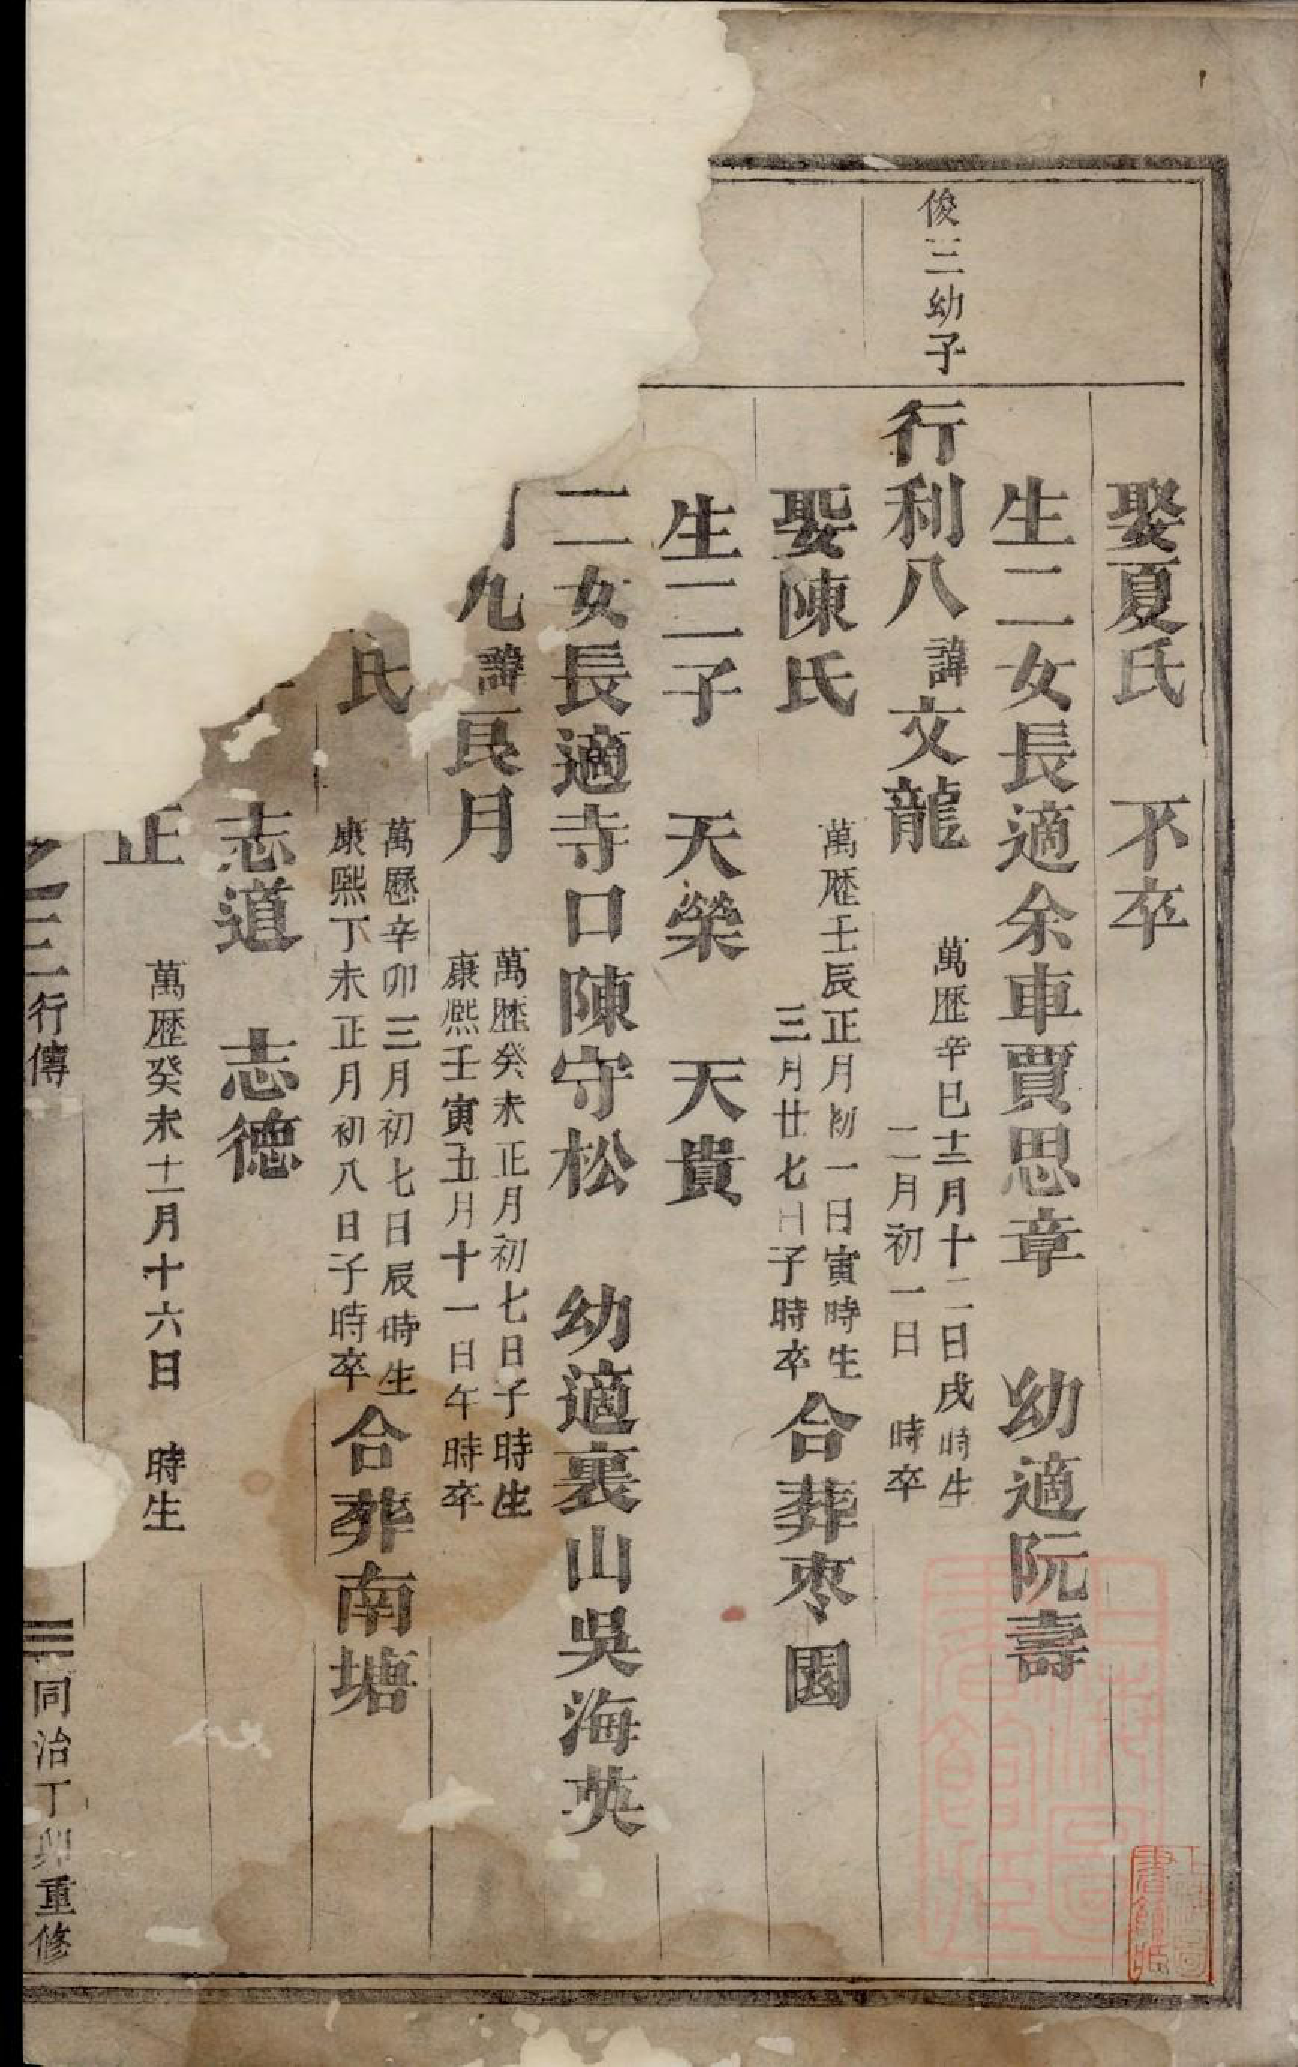 娶夏氏 不卒
生二女長適余車賈思章 幼適阮壽
俊三幼子
行利八諱文龍
萬歷辛巳十二月十二日戌時生
二月初一日 時卒
娶陳氏
萬歷壬辰正月初一日寅時生
三月廿七日子時卒
合葬枣園
生二子 天榮 天貴
二女長適寺口陳守松 幼適裏山吳海英
九諱良月
萬歷癸未正月初七日子時生
康熙壬寅五月十一日午時卒
氏
萬歷辛卯三月初七日辰時生
康熙丁未正月初八日子時卒
合葬南塘
志道 志德
正
萬歷癸未十一月十六日 時生
之三 行傳
同治丁卯重修
上海圖書館藏